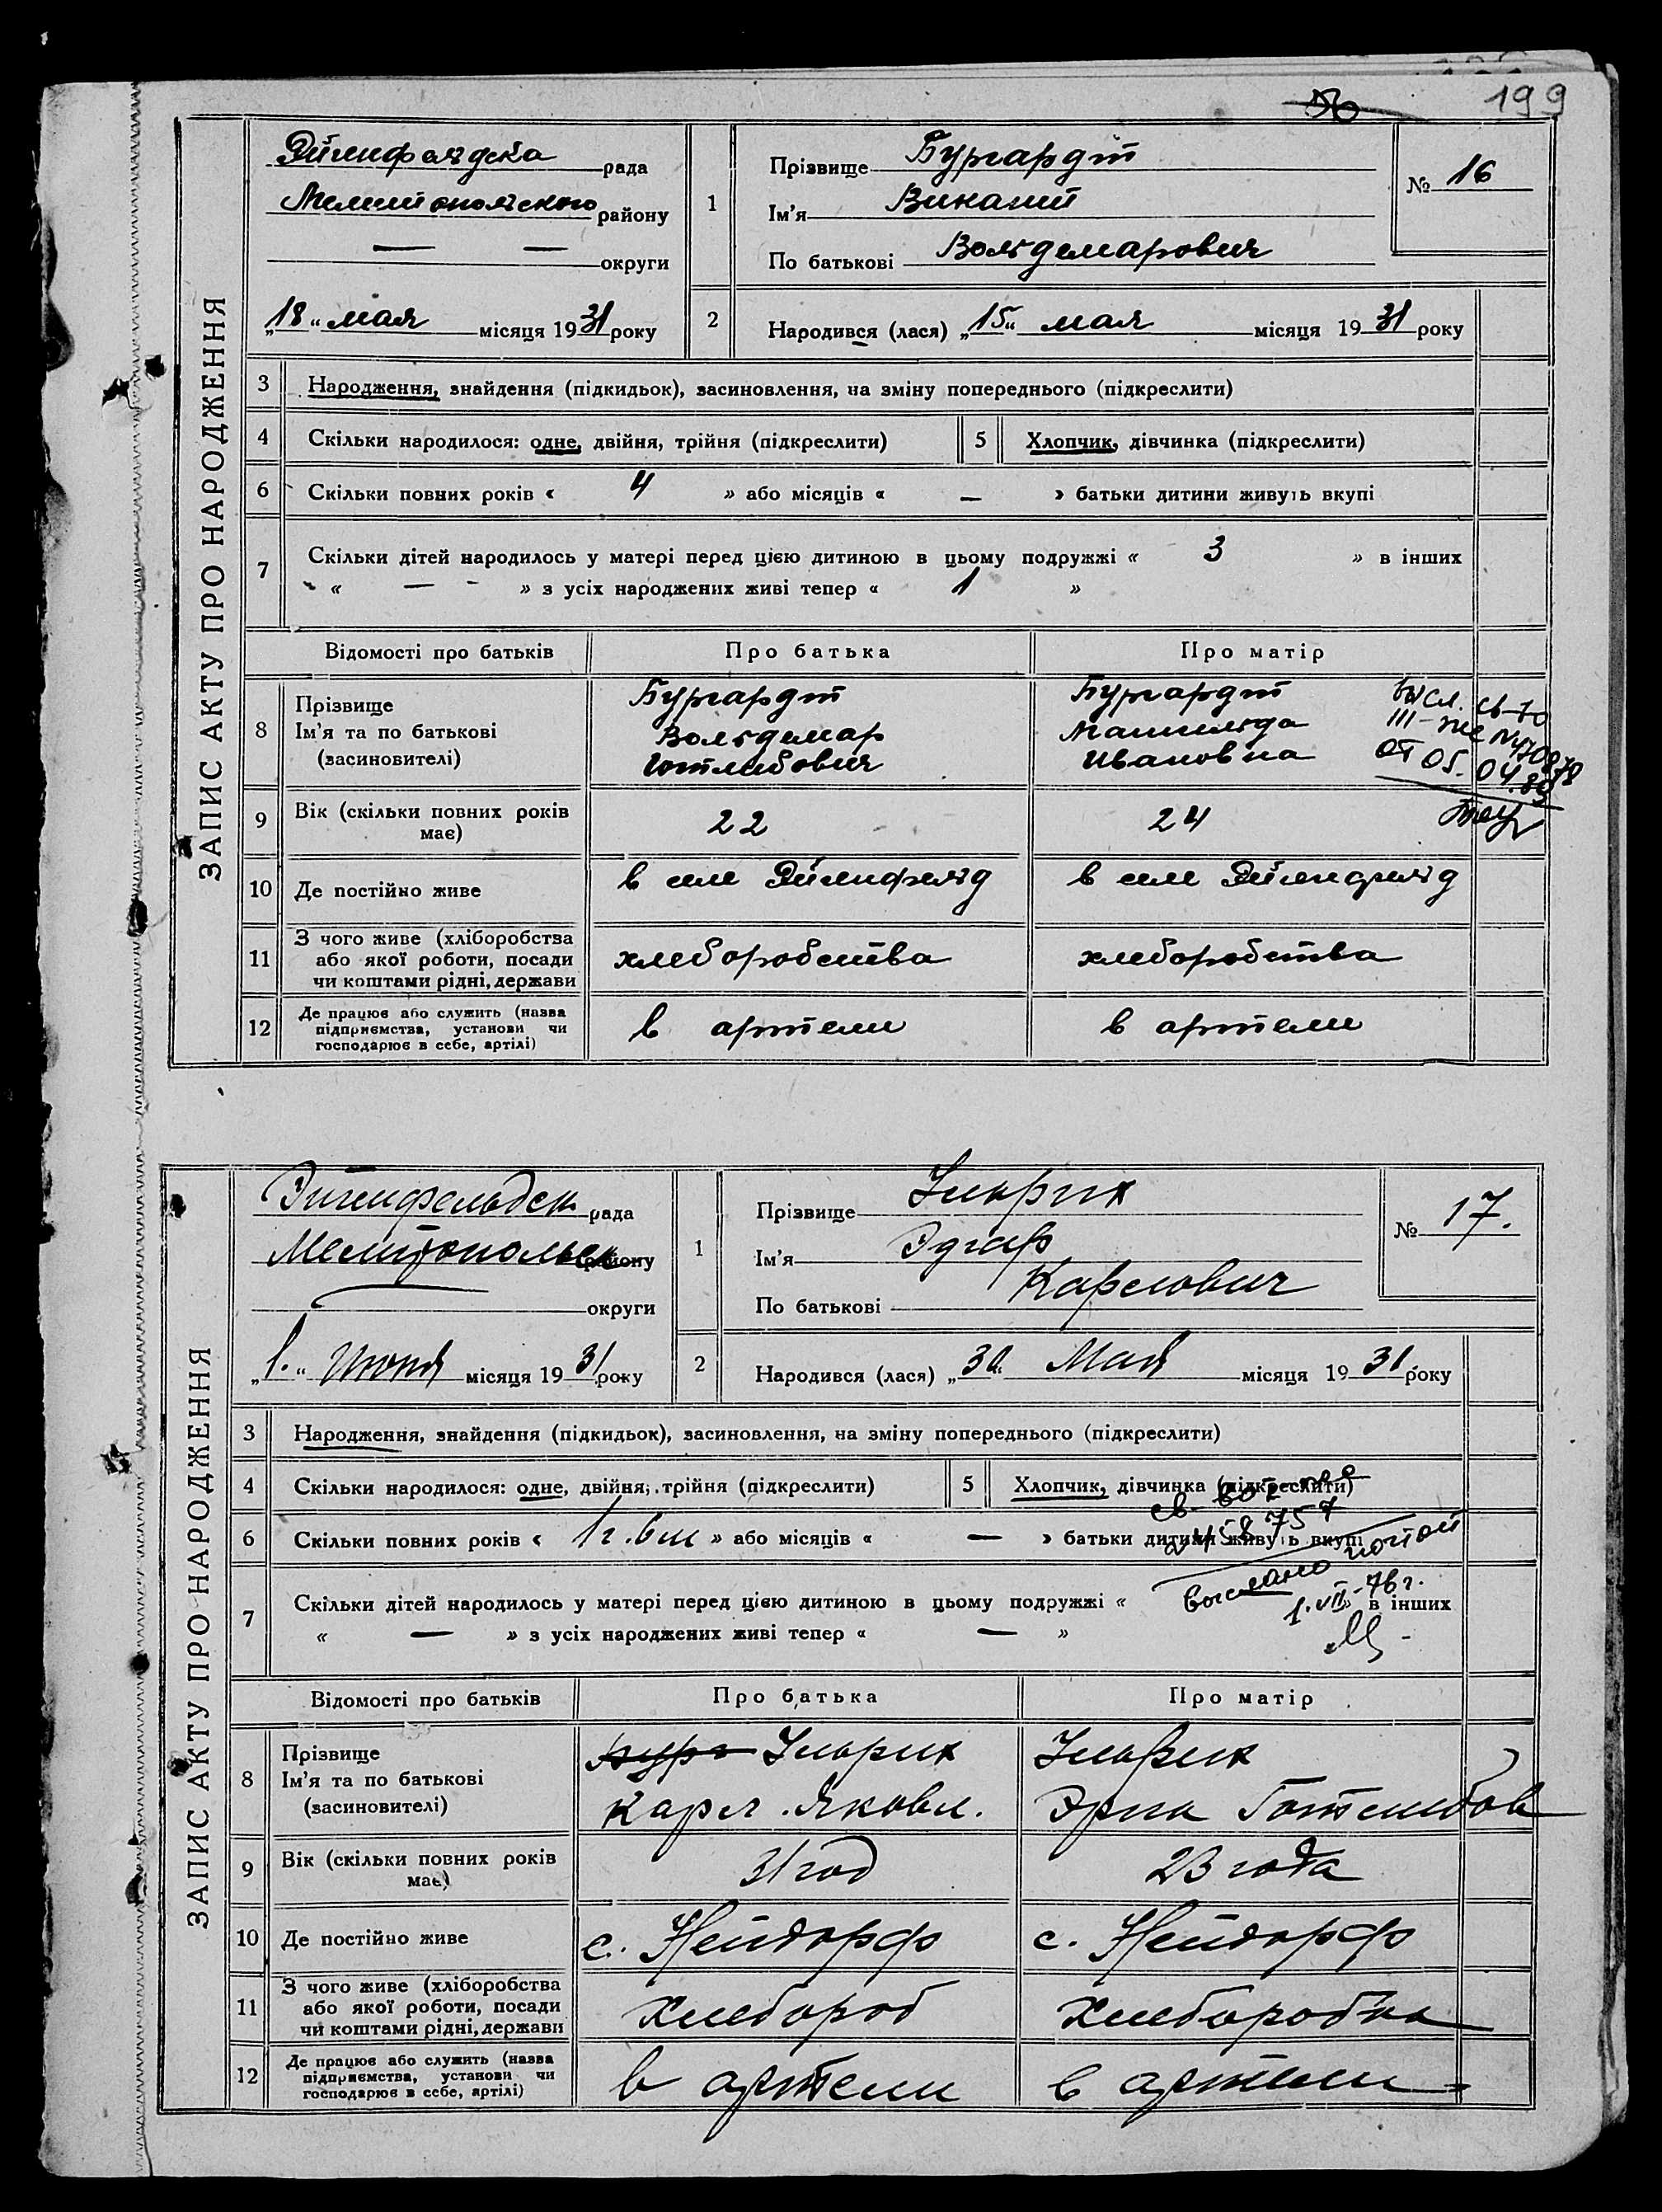 199
ЗАПИС АКТУ ПРО НАРОДЖЕННЯ
рада
Мелитопольского району
— — округи
„18“ мая місяця 1931 року
1
Прізвище Бургардт
Ім'я
По батькові Вольдемарович
№ 16
2
Народився (лася) „15“ мая місяця 1931 року
3 Народження, знайдення (підкидьок), засиновлення, на зміну попереднього (підкреслити)
4 Скільки народилося: одне, двійня, трійня (підкреслити)
5 Хлопчик, дівчинка (підкреслити)
6 Скільки повних років « 4 » або місяців « — » батьки дитини живуть вкупі
7 Скільки дітей народилось у матері перед цією дитиною в цьому подружжі « 3 » в інших
« — - » з усіх народжених живі тепер « 1 »
Відомості про батьків Про батька Про матір
8 Прізвище Бургардт Бургардт
Ім'я та по батькові Вольдемар Матильда
(засиновителі) Готлибович Ивановна
высл. св-во
III-
от 05.04.
9 Вік (скільки повних років має) 22 24
10 Де постійно живе в селе Эйгенфельд в селе Эйгенфельд
11 З чого живе (хліборобства
або якої роботи, посади хлеборобства хлеборобства
чи коштами рідні, держави
12 Де працює або служить (назва
підприємства, установи чи в артели в артели
господарює в себе, артілі)
ЗАПИС АКТУ ПРО НАРОДЖЕННЯ
Эйгенфельдск. рада
Мелитопольск району
округи
„1.“ Июня місяця 1931 року
1
Прізвище Ульрих
Ім'я Эдгар
По батькові Карлович
№ 17.
2
Народився (лася) „30“ Мая місяця 1931. року
3 Народження, знайдення (підкидьок), засиновлення, на зміну попереднього (підкреслити)
4 Скільки народилося: одне, двійня, трійня (підкреслити)
5 Хлопчик, дівчинка (підкреслити)
6 Скільки повних років « 1 г. 6 м » або місяців « — » батьки дитини живуть вкупі
7 Скільки дітей народилось у матері перед цією дитиною в цьому подружжі « » в інших
« — » з усіх народжених живі тепер « — »
458757
выслано почтой
1.VII-76 г.
Відомості про батьків Про батька Про матір
8 Прізвище Ульрих Ульрих
Ім'я та по батькові Карл Яковл. Эрна Готлибов
(засиновителі)
9 Вік (скільки повних років має) 31 год 23 года
10 Де постійно живе с. Нейдорф с. Нейдорф
11 З чого живе (хліборобства
або якої роботи, посади Хлебороб Хлеборобка
чи коштами рідні, держави
12 Де працює або служить (назва
підприємства, установи чи в артели в артели
господарює в себе, артілі)